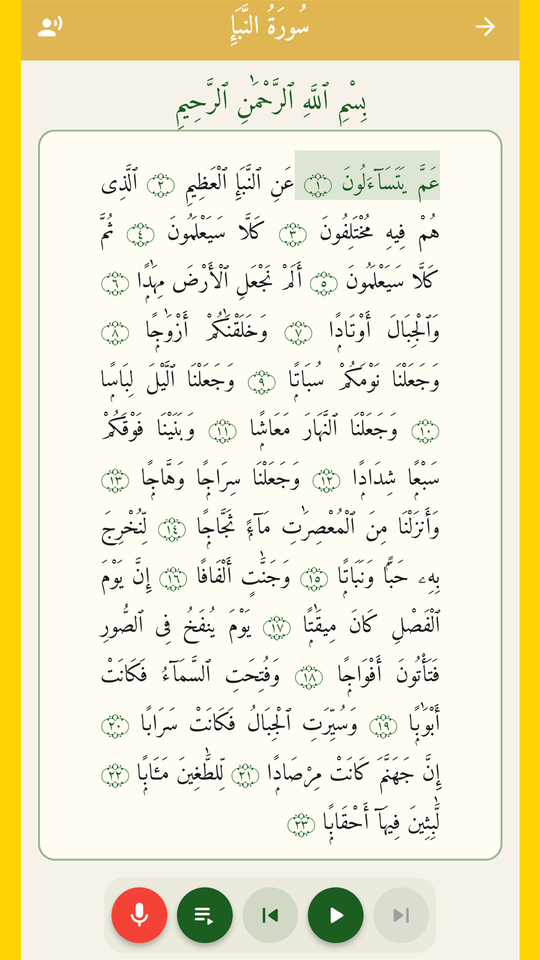 سُورَةُ النَّبَإِ
بِسْمِ ٱللَّهِ ٱلرَّحْمَٰنِ ٱلرَّحِيمِ
عَمَّ يَتَسَآءَلُونَ ١ عَنِ ٱلنَّبَإِ ٱلْعَظِيمِ ٢ ٱلَّذِى
هُمْ فِيهِ مُخْتَلِفُونَ ٣ كَلَّا سَيَعْلَمُونَ ٤ ثُمَّ
كَلَّا سَيَعْلَمُونَ ٥ أَلَمْ نَجْعَلِ ٱلْأَرْضَ مِهَٰدًۭا ٦
وَٱلْجِبَالَ أَوْتَادًۭا ٧ وَخَلَقْنَٰكُمْ أَزْوَٰجًۭا ٨
وَجَعَلْنَا نَوْمَكُمْ سُبَاتًۭا ٩ وَجَعَلْنَا ٱلَّيْلَ لِبَاسًۭا
١٠ وَجَعَلْنَا ٱلنَّهَارَ مَعَاشًۭا ١١ وَبَنَيْنَا فَوْقَكُمْ
سَبْعًۭا شِدَادًۭا ١٢ وَجَعَلْنَا سِرَاجًۭا وَهَّاجًۭا ١٣
وَأَنزَلْنَا مِنَ ٱلْمُعْصِرَٰتِ مَآءًۭ ثَجَّاجًۭا ١٤ لِّنُخْرِجَ
بِهِۦ حَبًّۭا وَنَبَاتًۭا ١٥ وَجَنَّٰتٍ أَلْفَافًا ١٦ إِنَّ يَوْمَ
ٱلْفَصْلِ كَانَ مِيقَٰتًۭا ١٧ يَوْمَ يُنفَخُ فِى ٱلصُّورِ
فَتَأْتُونَ أَفْوَاجًۭا ١٨ وَفُتِحَتِ ٱلسَّمَآءُ فَكَانَتْ
أَبْوَٰبًۭا ١٩ وَسُيِّرَتِ ٱلْجِبَالُ فَكَانَتْ سَرَابًا ٢٠
إِنَّ جَهَنَّمَ كَانَتْ مِرْصَادًۭا ٢١ لِّلطَّٰغِينَ مَـَٔابًۭا ٢٢
لَّٰبِثِينَ فِيهَآ أَحْقَابًۭا ٢٣